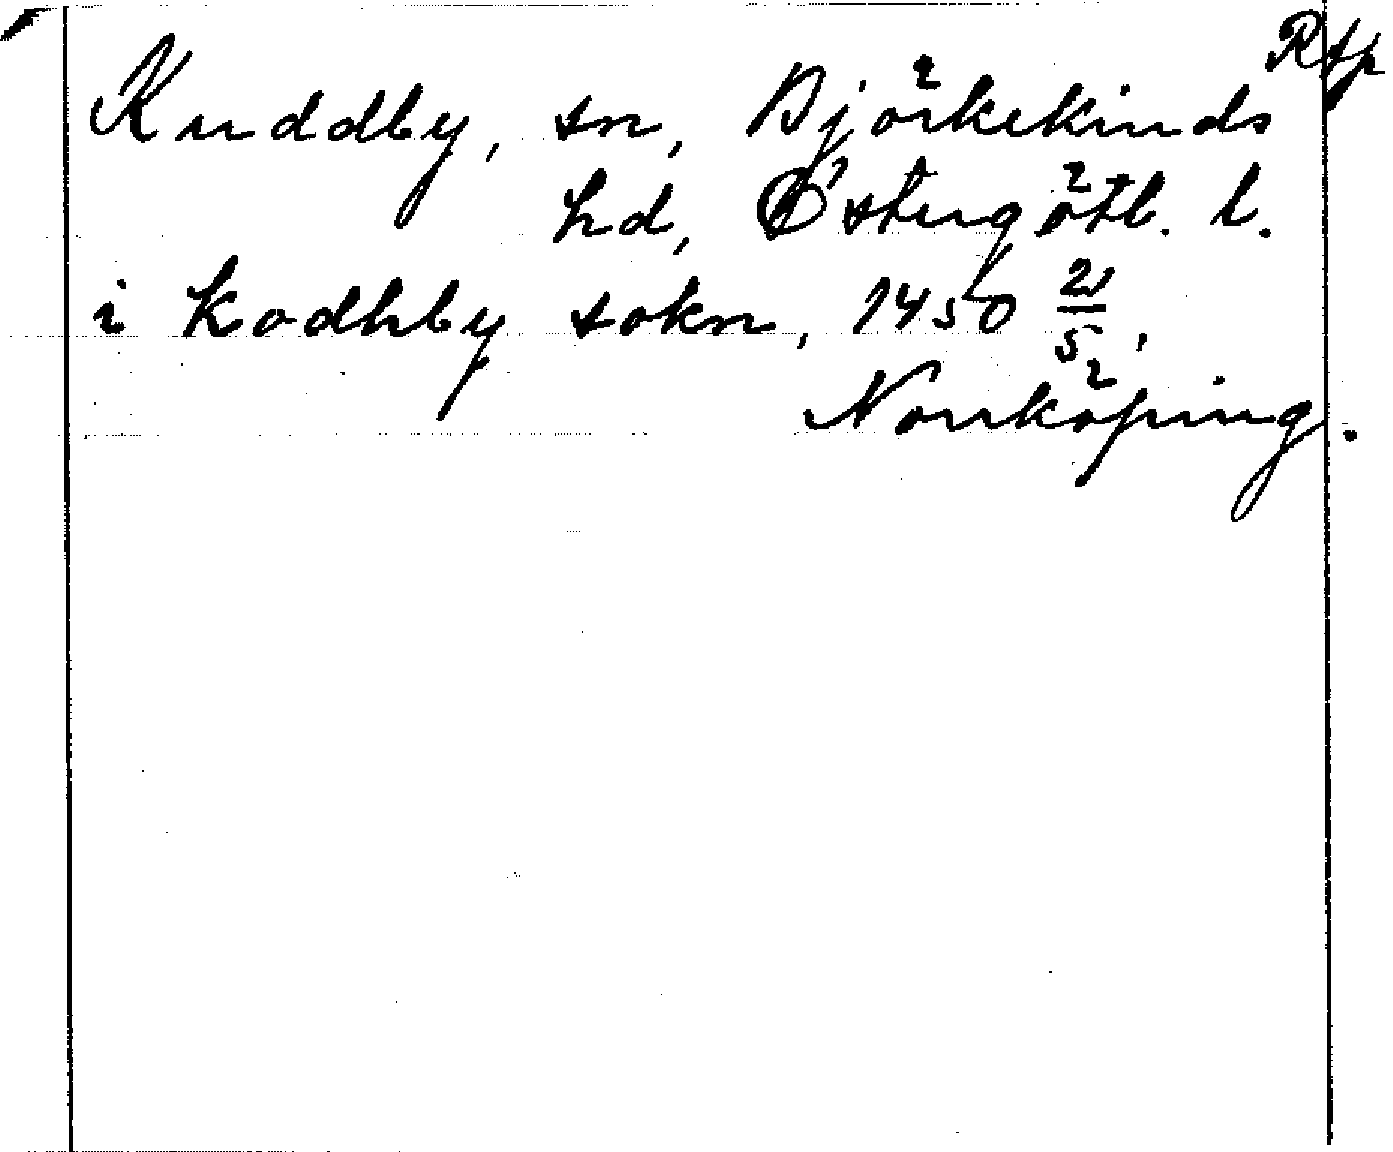 Rfp
Kuddby, sn, Björkekinds
hd, Östergötl. l.
i Kodhby sokn, 1450 21/5,
Norrköping.